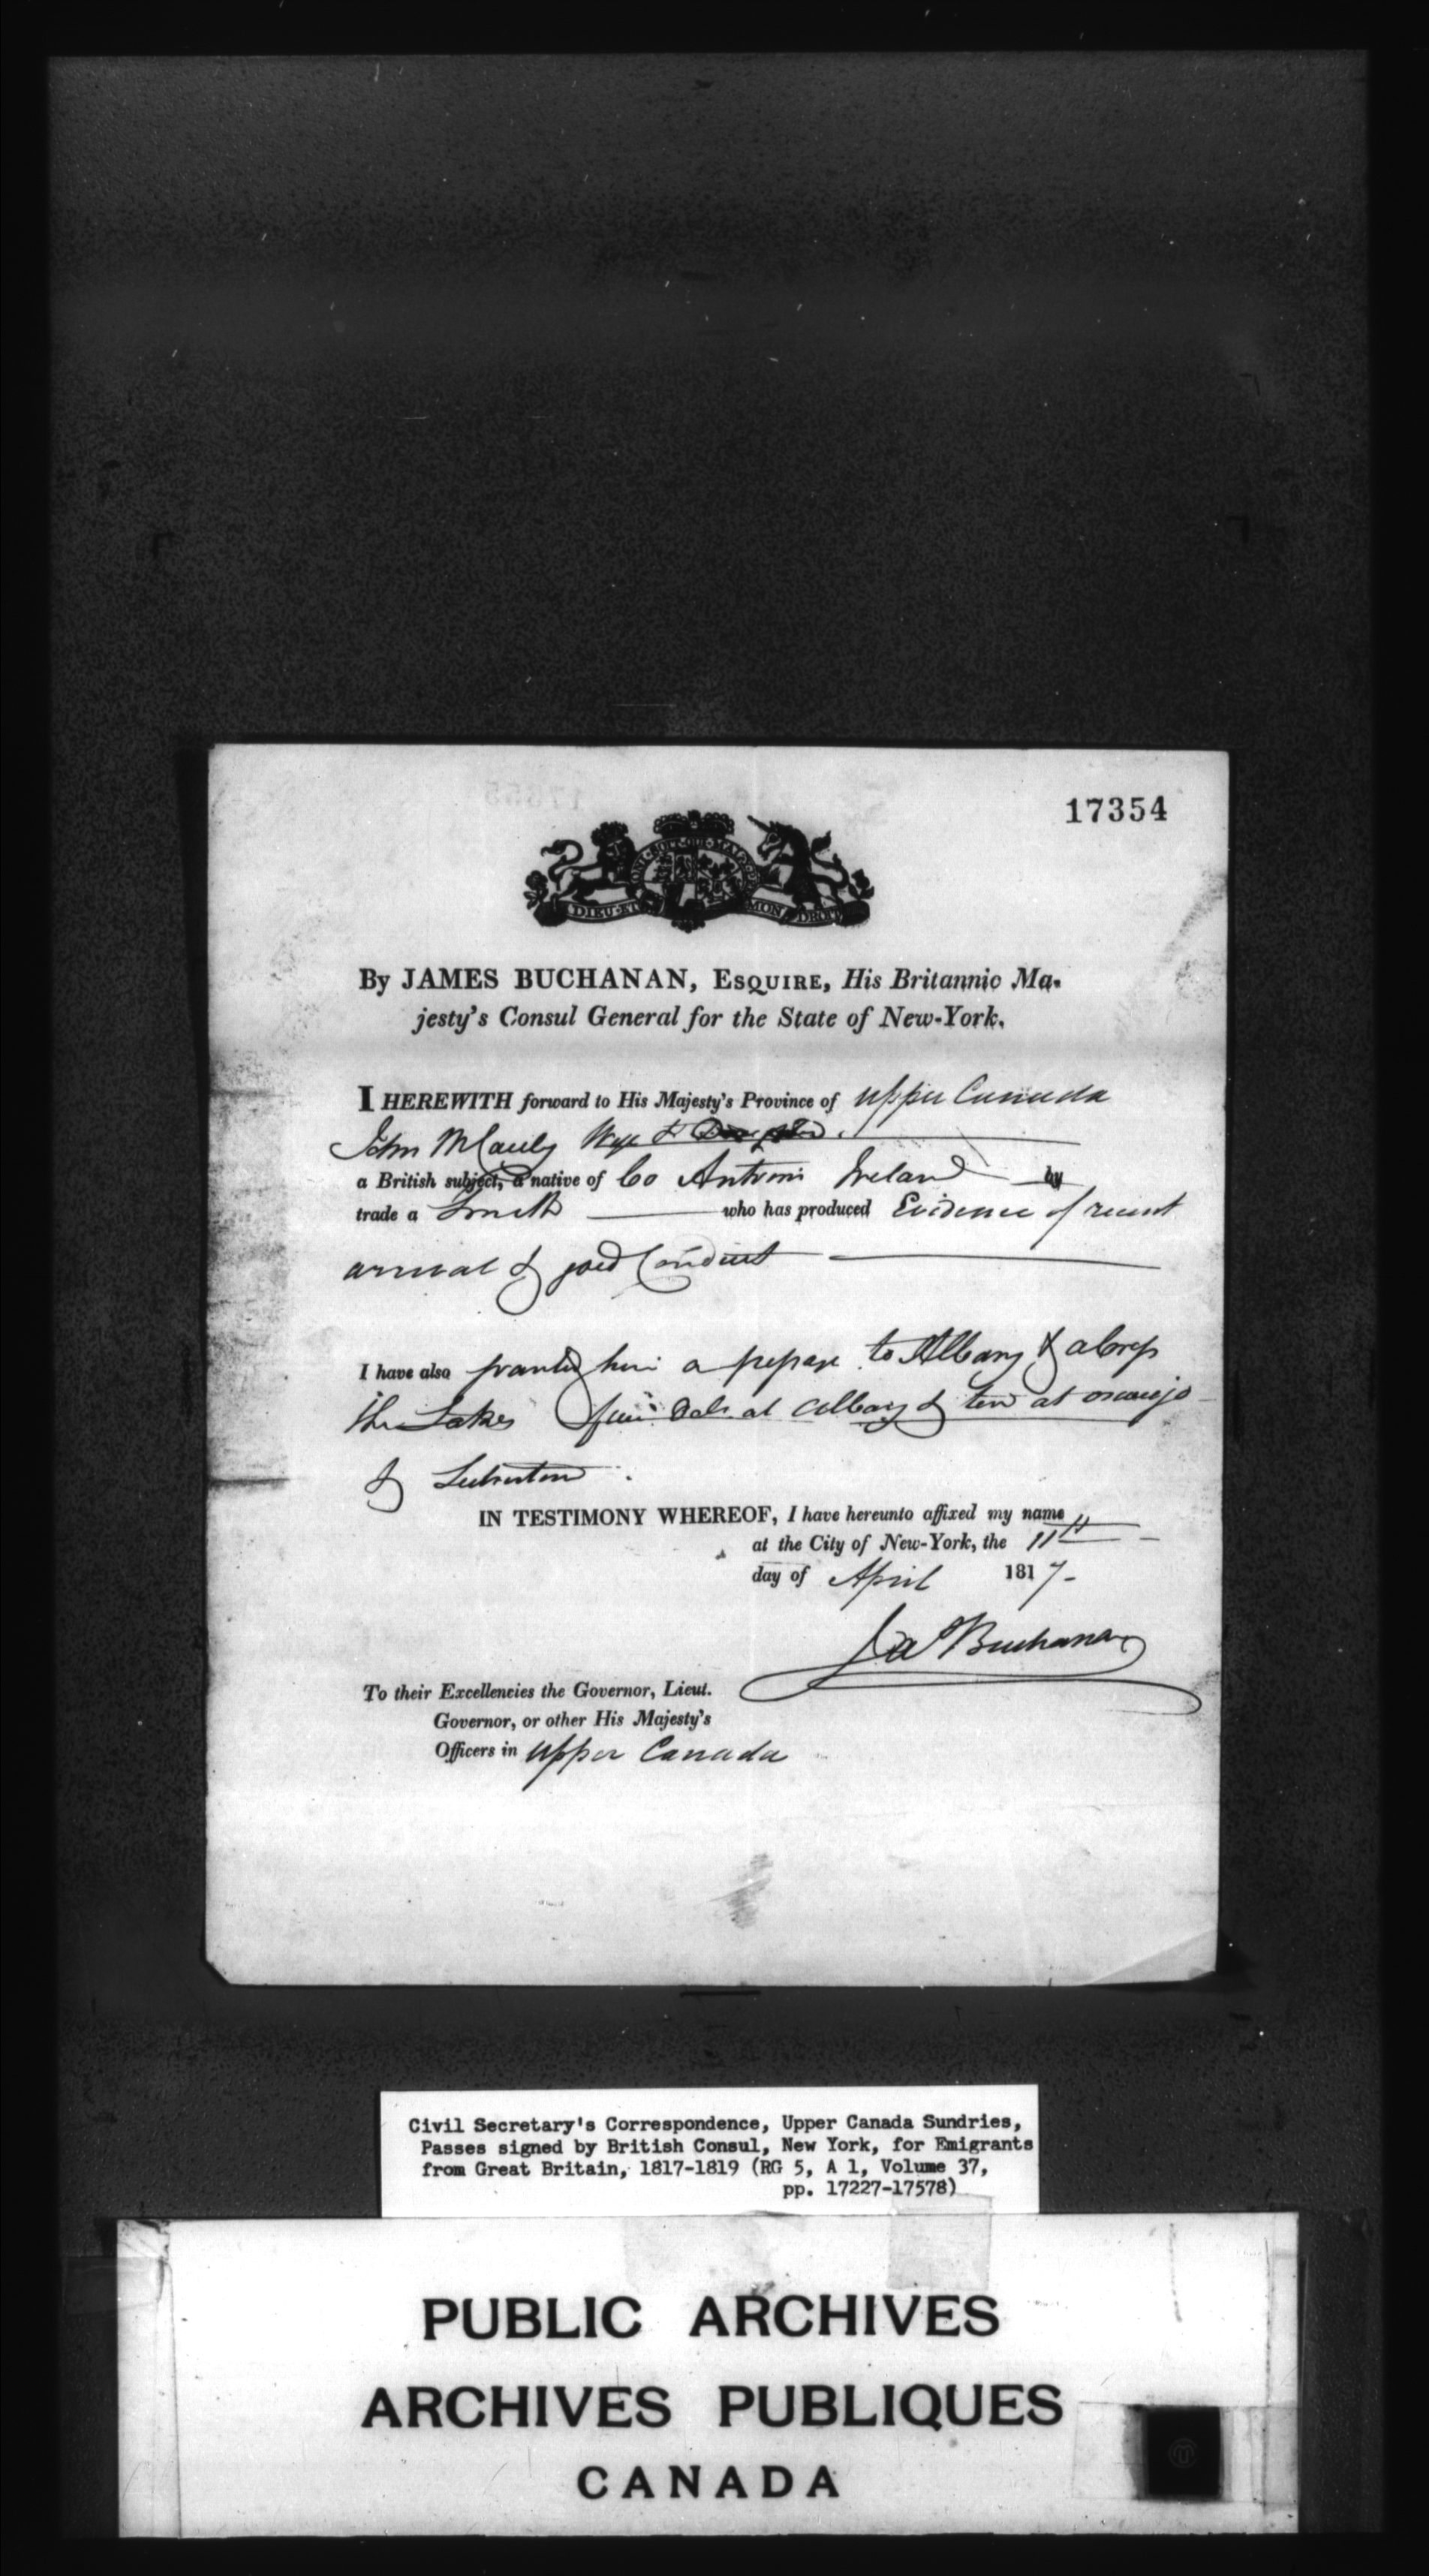 17354
HONI·SOIT·QUI·MAL·Y·PENSE
DIEU·ET MON DROIT
By JAMES BUCHANAN, ESQUIRE, His Britannic Ma-
jesty's Consul General for the State of New-York.
I HEREWITH forward to His Majesty's Province of Upper Canada
John McCauly Wife &
a British subject, a native of Co Antrim Ireland by
trade a Smith who has produced Evidence of recent
arrival & good Conduct
I have also granted him a passage to Albany & across
the Lakes five Dols at Albany & ten at oswego
&
IN TESTIMONY WHEREOF, I have hereunto affixed my name
at the City of New-York, the 11th
day of April 1817-
Ja Buchanan
To their Excellencies the Governor, Lieut.
Governor, or other His Majesty's
Officers in Upper Canada
Civil Secretary's Correspondence, Upper Canada Sundries,
Passes signed by British Consul, New York, for Emigrants
from Great Britain, 1817-1819 (RG 5, A 1, Volume 37,
pp. 17227-17578)
PUBLIC ARCHIVES
ARCHIVES PUBLIQUES
CANADA